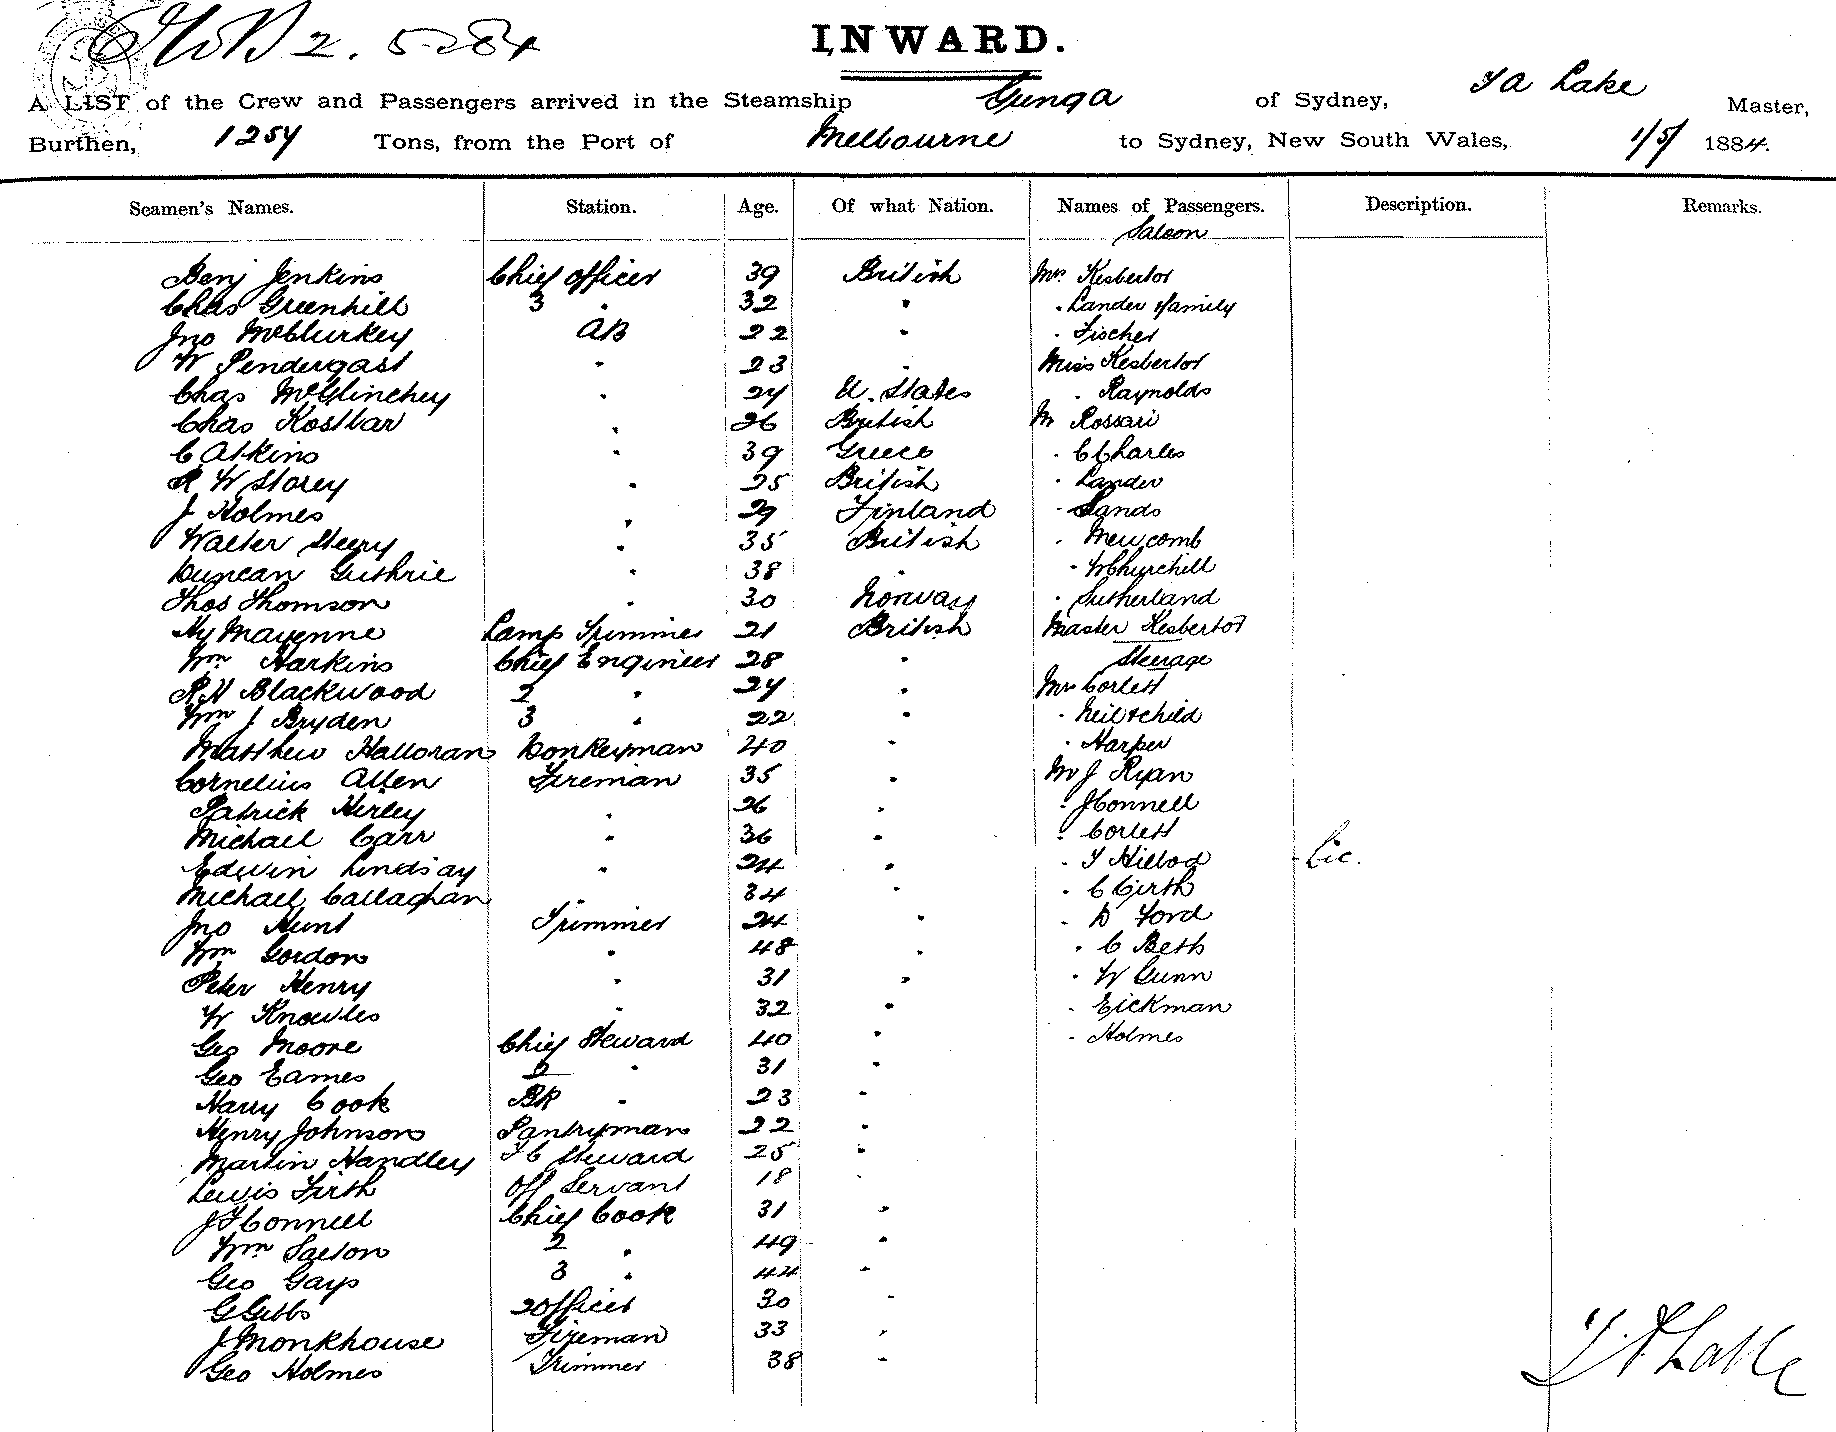 2.5.84
INWARD.
A LIST of the Crew and Passengers arrived in the Steamship Gunga of Sydney, T A Lake Master,
Burthen, 1254 Tons, from the Port of Melbourne to Sydney, New South Wales, 1/5/ 1884.
Seamen's Names. Station. Age. Of what Nation. Names of Passengers. Description. Remarks.
Saloon
Benj Jenkins Chief officer 39 British Mrs Kesbertot
Chas Greenhill 3 " 32 " " Lander & family
Jno McClurkey AB 22 " " Fischer
W Pendergast " 23 " Miss Kesbertot
Chas McGlinchey " 24 U. States " Raynolds
Chas Kostbar " 26 British Mr Rossari
C Atkins " 39 Greece " C Charles
R W Storey " 25 British " Lander
J Holmes " 29 Finland " Sands
Walter Steery " 35 British " Mewcomb
Duncan Guthrie " 38 " " W Churchill
Thos Thomson " 30 Norway " Sutherland
Hy Mayenne Lamp Trimmer 21 British Master Kesbertot
Wm Harkins Chief Engineer 28 " Steerage
R H Blackwood 2 " 24 " Mrs Corlett
Wm J Bryden 3 " 22 " " Neil & child
Matthew Halloran Donkeyman 40 " " Harper
Cornelius Allen Fireman 35 " Mr J Ryan
Patrick Hirley " 26 " " J Connell
Michael Carr " 36 " " Corlett
Edwin Lindsay " 24 " " T Hillod Lic.
Michael Callaghan " 34 " " C Girth
Jno Hunt Trimmer 24 " " D Ford
Wm Gordon " 48 " " C Beth
Peter Henry " 31 " " W Gunn
W Knowles " 32 " " Eickman
Geo Moore Chief Steward 40 " " Holmes
Geo Eames 2 " 31 "
Harry Cook BR " 23 "
Henry Johnson Pantryman 22 "
Martin Handley F C Steward 25 "
Lewis Firth Off Servant 18 "
J F Connell Chief Cook 31 "
Wm Salton 2 " 49 "
Geo Gays 3 " 44 "
G Gibbs 2 Officer 30 "
J Monkhouse Fireman 33 "
Geo Holmes Trimmer 38 "
T A Lake